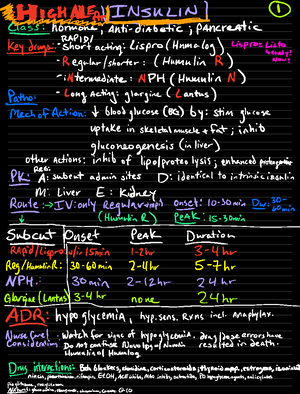 HIGH ALERT INSULIN 1
Class: hormone, Anti-diabetic; pancreatic
Key drugs: RAPID/
- short acting: Lispro (Humalog)
Lispro = Lets
Now!
- Regular/shorter: (Humulin R)
- iNtermediate: NPH (Humulin N)
- Long Acting: glargine (Lantus)
Patho:
Mech of Action: ↓ blood glucose (BG) by: stim glucose
uptake in skeletal muscle + fat; inhib
gluconeogenesis (in liver)
other Actions: inhib of lipo/proteolysis; enhanced
PK: A: subcut admin sites D: identical to intrinsic insulin
M: Liver E: Kidney
Route: → IV: only Regular Onset: 10-30 min Dur: 30-
60min
(Humulin R) Peak: 15-30min
Subcut Onset Peak Duration
RApid/Lispro w/in 15min 1-2hr 3-4hr
Reg/Humulin R: 30-60min 2-4hr 5-7hr
NPH: 30 min 2-12hr 24hr
Glargine (Lantus) 3-4 hr none 24hr
ADR: hypoglycemia, hyp.sens. Rxns incl. Anaphylax.
Nurse Care/ Watch for signs of hypoglycemia. drug/dose errors have
Considerations Do not confuse Novolog/ resulted in death.
Humulin & Humalog
Drug interactions: Beta blockers, clonidine, corticosteroids, thyroid supp, estrogens, isoniazid
niacin, rifampin, ETOH, ACE inhib, MAO inhib, octreotide, PO hypoglycemic agents, salicylates
glucosamine, chromium, CoQ10